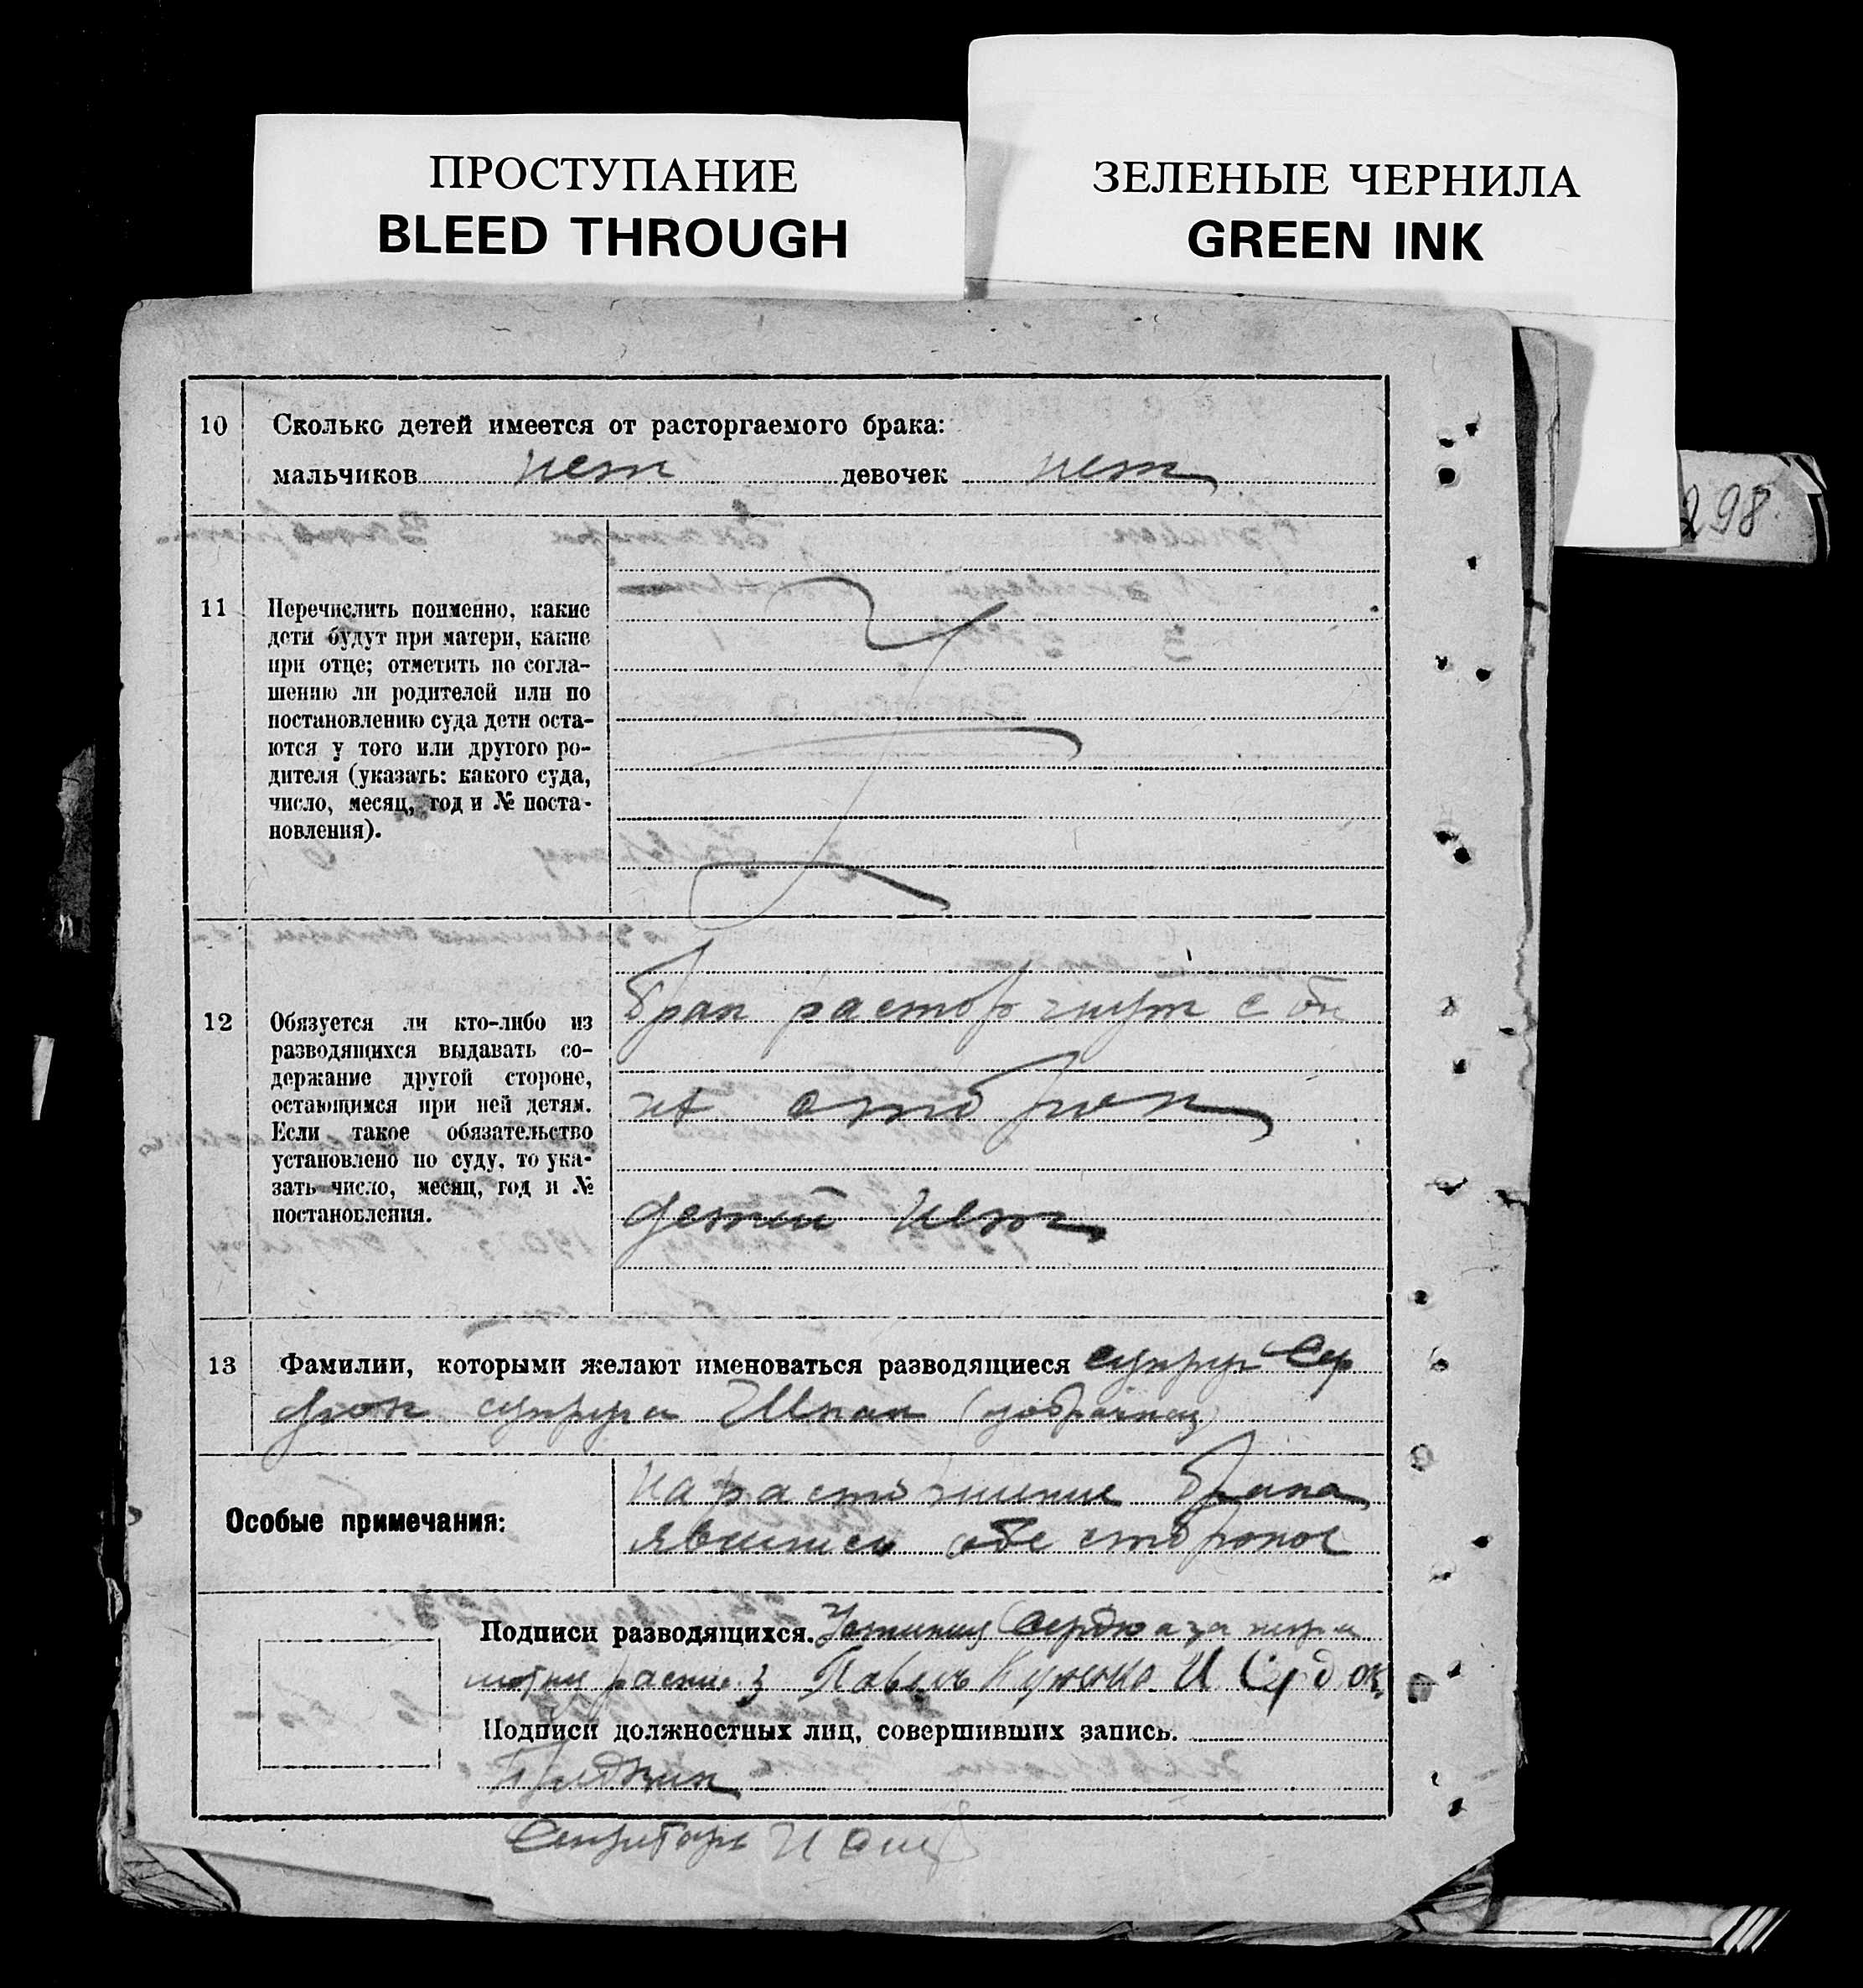 ПРОСТУПАНИЕ
BLEED THROUGH
ЗЕЛЕНЫЕ ЧЕРНИЛА
GREEN INK
298
10 Сколько детей имеется от расторгаемого брака:
мальчиков нет девочек нет
11 Перечислить поименно, какие
дети будут при матери, какие
при отце; отметить по согла-
шению ли родителей или по
постановлению суда дети оста-
ются у того или другого ро-
дителя (указать: какого суда,
число, месяц, год и № поста-
новления).
12 Обязуется ли кто-либо из
разводящихся выдавать со-
держание другой стороне,
остающимся при ней детям.
Если такое обязательство
установлено по суду, то ука-
зать число, месяц, год и №
постановления.
брак расторгнут с
сторон
детей нет
13 Фамилии, которыми желают именоваться разводящиеся супруг Сер
дюк супруга Шпак
Особые примечания:
на расторжение брака
явились обе стороны
Подписи разводящихся. Устиния Сердюк а за негра
Павель И Сердюк
Подписи должностных лиц, совершивших запись.
Секретарь